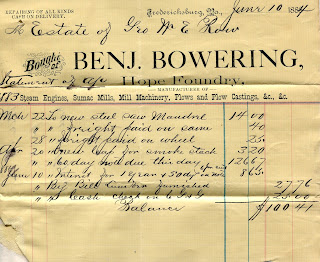 REPAIRING OF ALL KINDS
CASH ON DELIVERY.
Fredericksburg, Va., June 10 1884
The Estate of Geo W E Row
Bought of
BENJ. BOWERING,
Statement of a/c
Hope Foundry,
MANUFACTURER OF
Steam Engines, Sumac Mills, Mill Machinery, Plows and Plow Castings, &c., &c.
Mch 22 To new steel Saw Mandrel 14 00
" " freight paid on same 40
" 28 " freight paid on wheel 25
Apr 20 " Cap for smoke stack 3 20
" " 60 day note due this day 126 67
June 10 " Interest for 1 year & 50 dys on note 8 65
" By Bill Lumber furnished 27 76
" " Cash 25 00
Balance $100 41